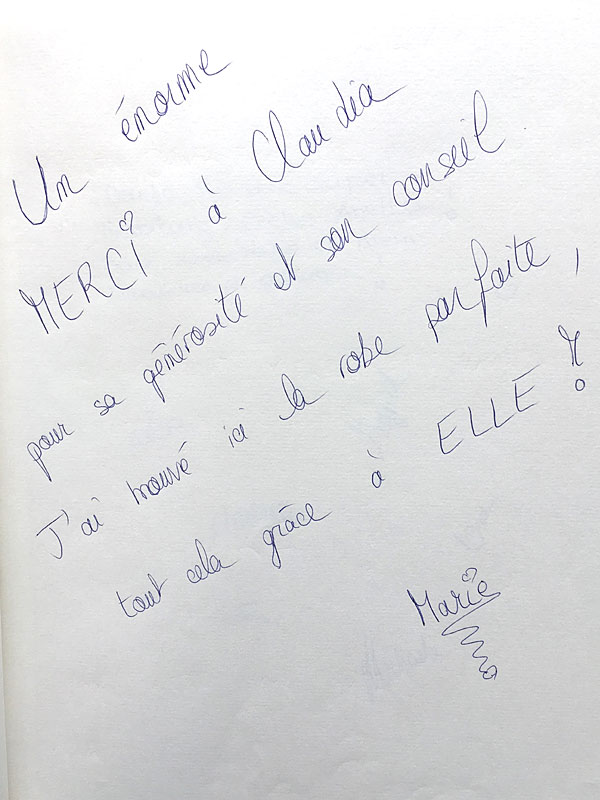 Un énorme
MERCI à Claudia
pour sa générosité et son conseil
J'ai trouvé ici la robe parfaite,
tout cela grâce à ELLE !
Marie